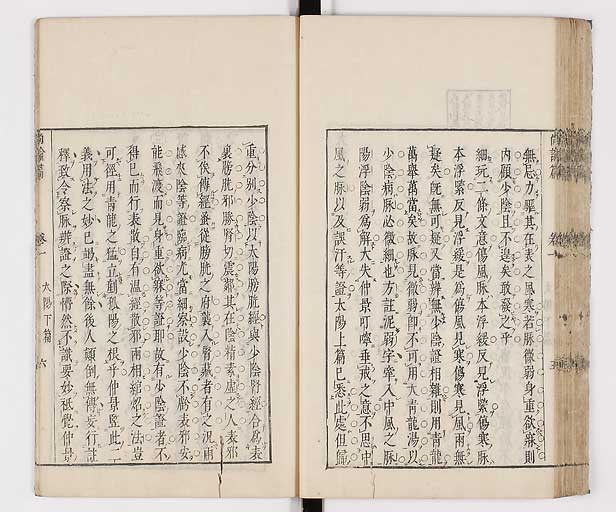 無忌力驅其在表之風寒若脉微弱身重欲寐則
内顧少陰且不遑矣敢發之乎
細玩二條文意傷風脉本浮緩反見浮緊傷寒脉
本浮緊反見浮緩是為傷風見寒傷寒見風兩無
疑矣既無可疑又當辨無少陰證相雜則用青龍
萬舉萬當矣故脉見微弱即不可用大青龍湯以
少陰病脉必微細也方註泥弱字牽入中風之脉
陽浮陰弱為解大失仲景叮嚀垂戒之意不思中
風之脉以及誤汗等證太陽上篇已悉此處但歸
重分别少陰以太陽膀胱經與少陰腎經合為表
裏膀胱邪勝腎切震鄰其在陰精素虚之人表邪
不俟傳經蚤從膀胱之府襲入腎藏者有之况兩
感夾陰等證臨病尤當細察設少陰不虧表邪安
能飛渡而見身重欲寐等證耶故有少陰證者不
得已而行表散自有温經散邪兩相綰照之法豈
可徑用青龍之猛立剷孤陽之根乎仲景竪此一
義用法之妙已竭盡無餘後人顛倒無傳妄行註
釋致令察脉辨證之際懵然不識要妙祗覺仲景
尚論篇
卷一
太陽下篇
六